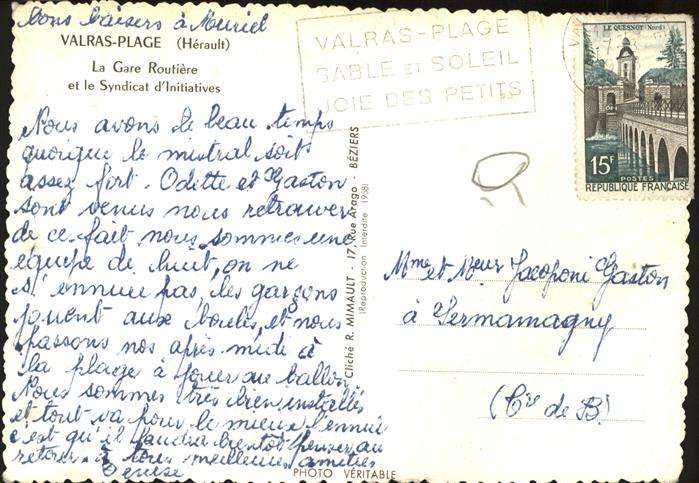 bons baisers à Muriel
VALRAS-PLAGE (Hérault)
La Gare Routière
et le Syndicat d'Initiatives
Nous avons le beau temps
quoique le mistral soit
assez fort. Odette et Gaston
sont venus nous retrouver
de ce fait nous sommes une
équipe de huit, on ne
s'ennuie pas, les garçons
jouent aux boules, et nous
passons nos après midi à
la plage à jouer au ballon
Nous sommes très bien installés
et tout va pour le mieux l'ennui
c'est qu'il faudra bientôt penser au
retour à tous meilleures amitiés
Denise
PHOTO VÉRITABLE
Cliché R. MIMAULT - 17, Rue Arago - BÉZIERS
(Reproduction Interdite 1938)
VALRAS-PLAGE
SABLE ET SOLEIL
JOIE DES PETITS
LE QUESNOY (Nord)
15F
POSTES
RÉPUBLIQUE FRANÇAISE
Mme et Mieur Jacoponi Gaston
à Sermamagny
(Cre de B)